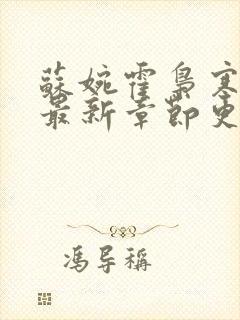 蘇婉霍梟寒
最新章節更
馮导稱